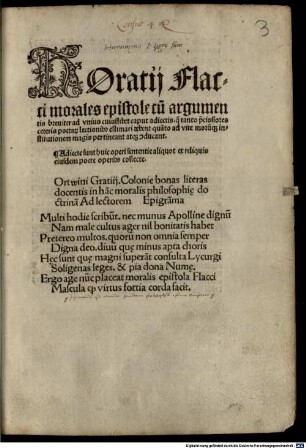 3
HOratij Flac-
ci morales epistole cũ argumen
tis breuiter ad vnius cuiuslibet caput adiectis, q̃ tanto p̃ciosiores
ceteris poetaꝝ lectionibꝰ estimari debent quãto ad vite morũqꝫ in
stitutionem magis pertineant atqꝫ ↄducant.
¶ Adiecte sunt huic operi sententie aliquot ex reliquis
eiusdem poete operibꝰ collecte.
Ortwini Gratij, Colonie bonas literas
docentis in hãc moralis philosophię do
ctrinã Ad lectorem Epigrãma
Multi hodie scribũt, nec munus Apolline dignũ
Nam male cultus ager nil bonitatis habet
Pretereo multos, quorũ non omnia semper
Digna deo, diuũ quę minus apta choris
Hec sunt quę magni superãt consulta Lycurgi
Soligenas leges, & pia dona Numę.
Ergo age nũc placeat moralis epistola Flacci
Mascula qꝫ virtus fortia corda facit.